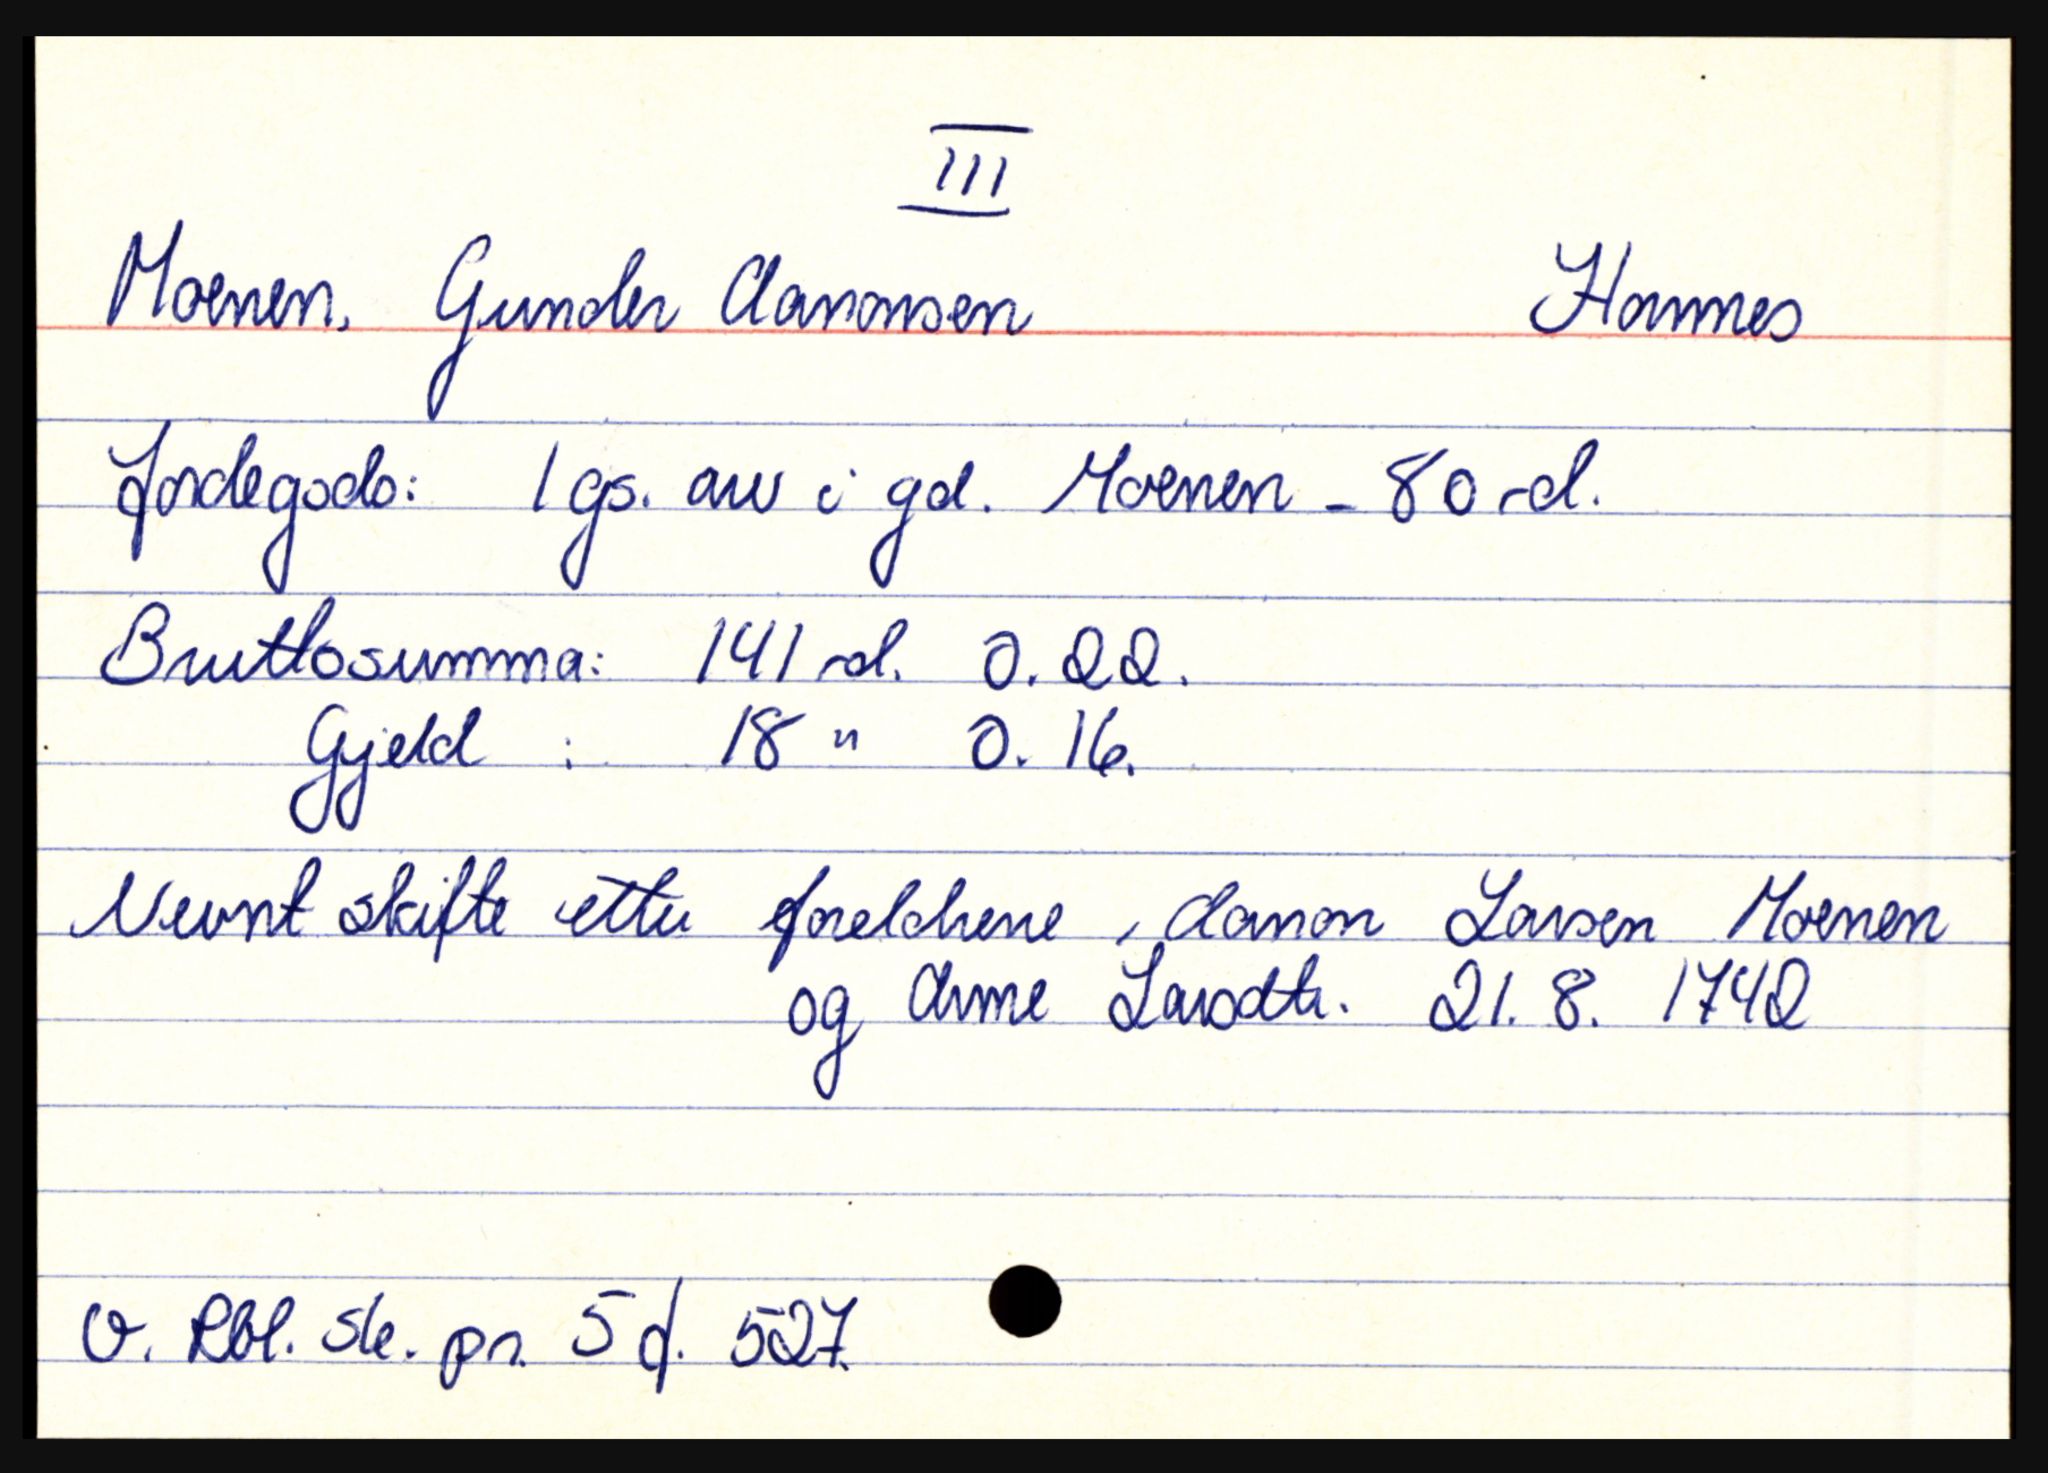 III
Moenen. Gunder Aanonsen Homnes
Jordegods: 1 gs. aw i gd. Moenen - 80 rd.
Bruttosumma: 141 rd. 0. 22.
Gjeld : 18 " 0. 16.
Nevnt skifte etter foreldrene, Aanon Larsen Moenen
og Anne Larsdtr. 21. 8. 1742
V. Rbl. sk. pr. 5 f. 527.